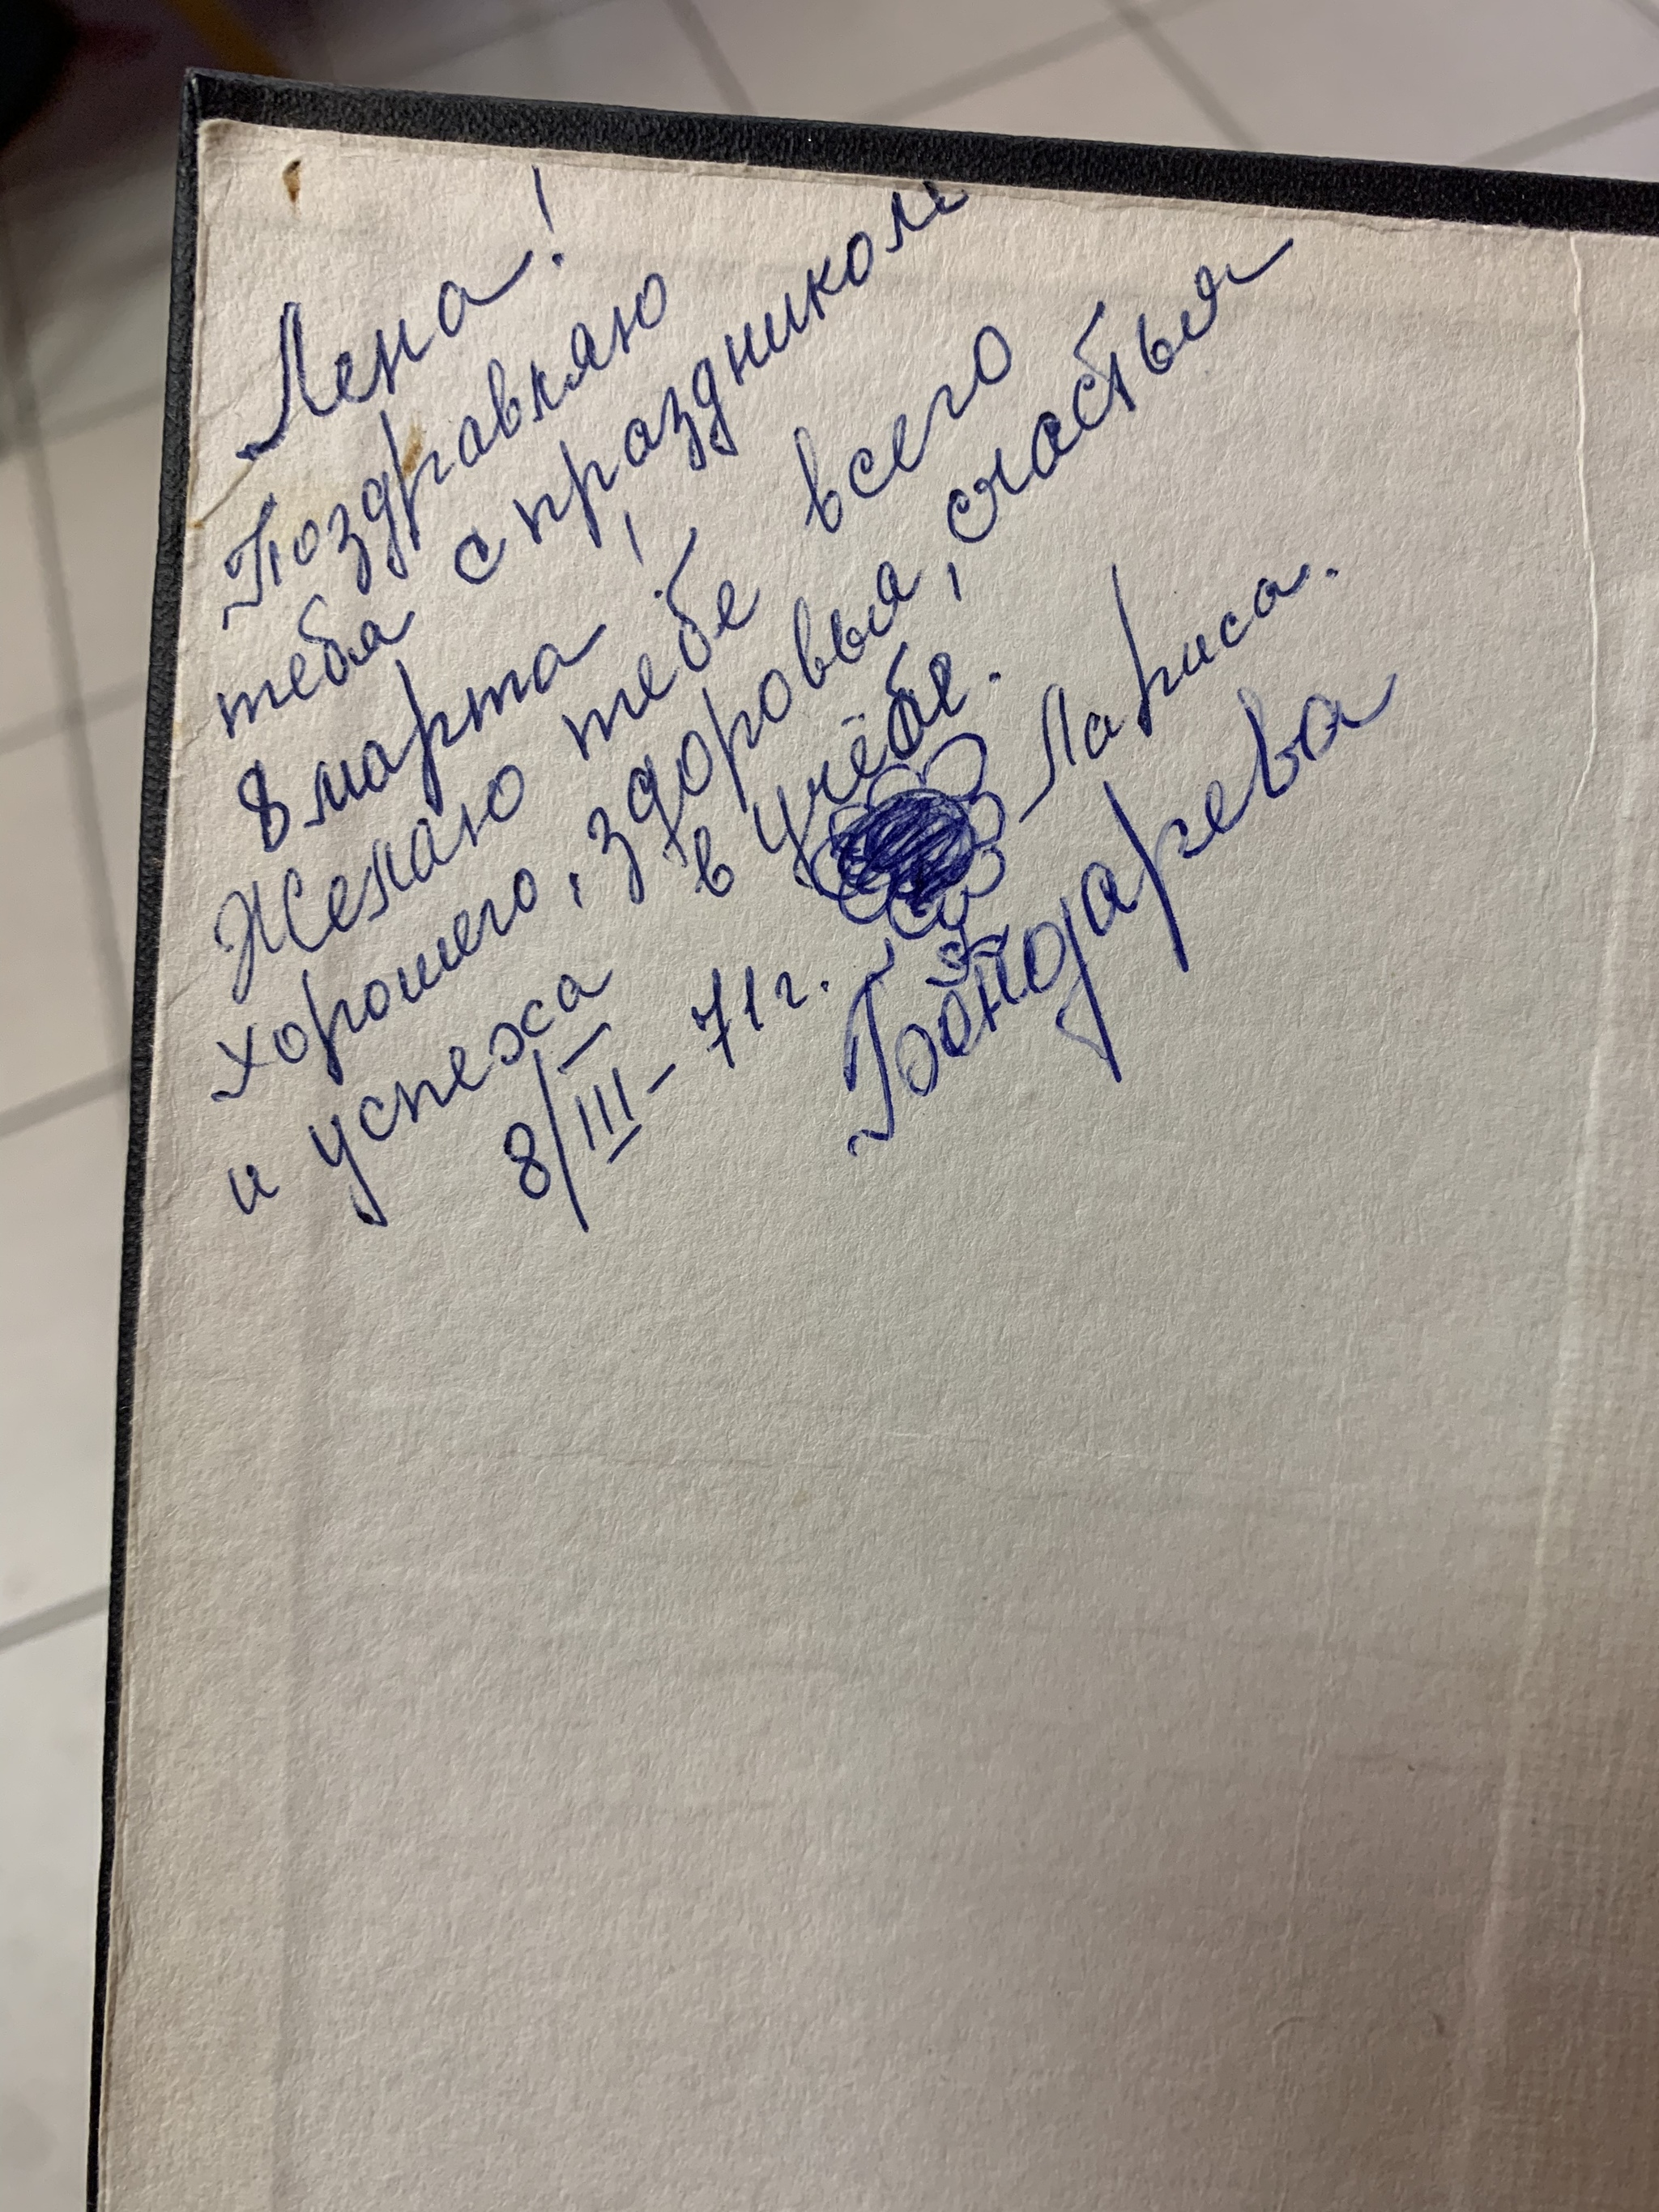 Лена!
Поздравляю
тебя с праздником
8 марта!
Желаю тебе всего
хорошего, здоровья, счастья
и успеха в учёбе.
8/III - 71 г. Лариса.
Бондарева